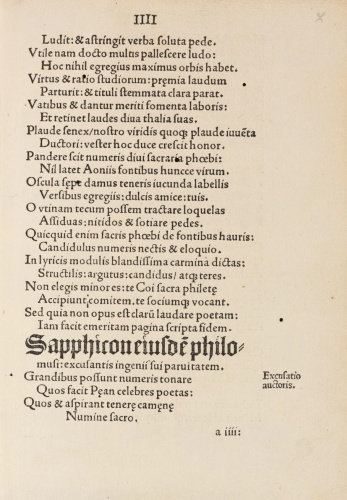 IIII
Ludit: & astringit verba soluta pede.
Vtile nam docto multus pallescere ludo:
Hoc nihil egregius maximus orbis habet.
Virtus & ratio studiorum: pręmia laudum
Parturit: & tituli stemmata clara parat.
Vatibus & dantur meriti fomenta laboris:
Et retinet laudes diua thalia suas.
Plaude senex/nostro viridis quoqꝫ plaude iuuēta
Ductori: vester hoc duce crescit honor.
Pandere scit numeris diui sacraria phœbi:
Nil latet Aoniis fontibus huncce virum.
Oscula sępe damus teneris iucunda labellis
Versibus egregiis: dulcis amice: tuis.
O vtinam tecum possem tractare loquelas
Assiduas: nitidos & sotiare pedes.
Quicquid enim sacris phœbi de fontibus hauris:
Candidulus numeris nectis & eloquio.
In lyricis modulis blandissima carmina dictas:
Structilis: argutus: candidus/ atqꝫ teres.
Non elegis minores: te Coi sacra philetę
Accipiunt comitem, te sociumqꝫ vocant.
Sed quia non opus est clarū laudare poetam:
Iam facit emeritam pagina scripta fidem.
Sapphicon eiusdē philo-
musi: excusantis ingenii sui paruitatem.
Grandibus possunt numeris tonare
Excusatio
auctoris.
Quos facit Pęan celebres poetas:
Quos & aspirant tenerę camęnę
Numine sacro.
a iiii: